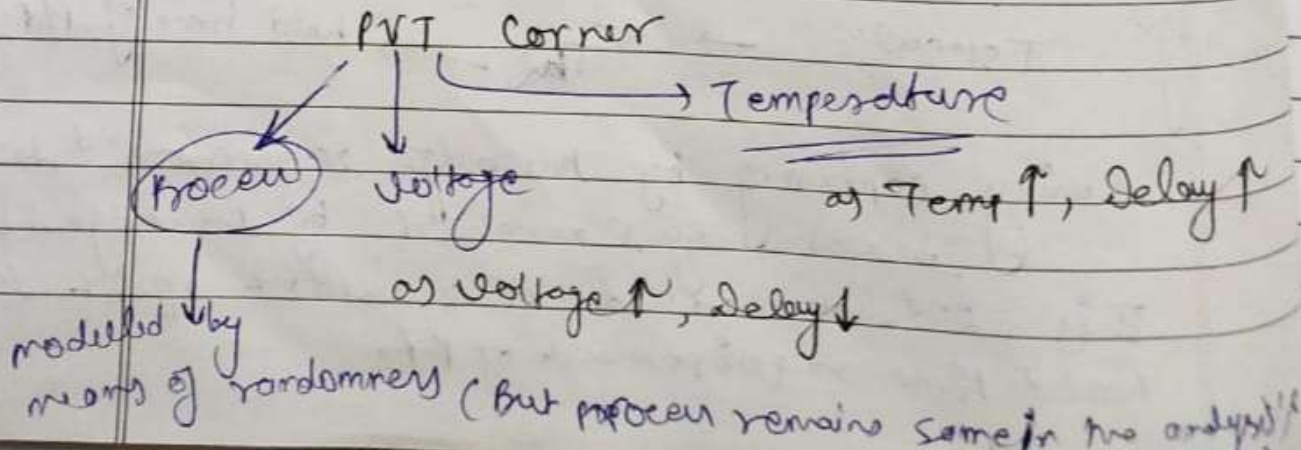 PVT Corner
Temperature
Process Voltage
as Temp ↑, Delay ↑
as Voltage ↑, Delay ↓
modelled by
means of randomness (But process remains same in analysis)